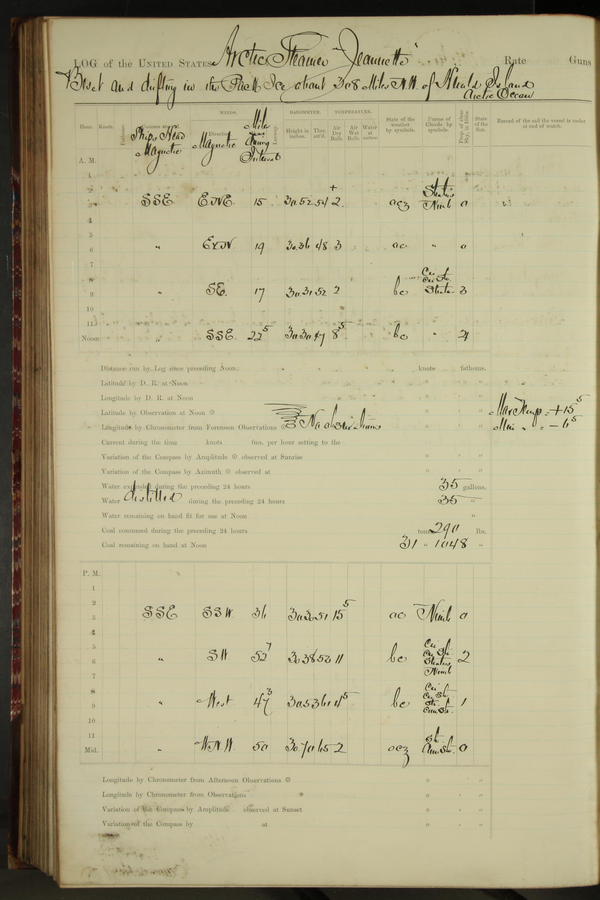 LOG of the UNITED STATES Arctic Steamer "Jeannette" Rate Guns
Beset and drifting in the Pack Ice about 308 Miles N.W. of Herald Island
Arctic Ocean
WINDS. BAROMETER. TEMPERATURE.
Hour. Knots. Ship's Head Magnetic Direction Magnetic Miles During Interval Height in inches. Ther. att'd. Air Dry Bulb. Air Wet Bulb. Water at surface. State of the weather by symbols. Forms of Clouds by symbols. State of the Sea. Record of the sail the vessel is under at end of watch.
A. M.
1
2
3 SSE ENE 15 30.52 54 + 2. ocz Strat. Nimb 0
4
5
6 " 19 30.36 48 3 oc " 0
7
8
9 " SE. 17 30.31 52 2 bc Strata 3
10
11
Noon " SSE. 22 5 8 5 bc "
Distance run by Log since preceding Noon, knots fathoms.
Latitude by D. R. at Noon
Longitude by D. R. at Noon
Latitude by Observation at Noon
Longitude by Chronometer from Forenoon Observations No observations
Max Temp = + 15 5
Min " = - 6 5
Current during the time knots fms. per hour setting to the
Variation of the Compass by Amplitude observed at Sunrise
Variation of the Compass by Azimuth observed at
Water expended during the preceding 24 hours 35 gallons.
Water distilled during the preceding 24 hours 35 "
Water remaining on hand fit for use at Noon "
Coal consumed during the preceding 24 hours tons 290 lbs.
Coal remaining on hand at Noon 31 " 1048 "
P. M.
1
2
3 SSE SSW. 36 51 15 5 oc Nimb 0
4
5
6 " SW 52 7 30.38 53 11 bc Cu. St. Stratus Nimb 2
7
8
9 " West 47 3 30.53 61 4 5 bc 1
10
11
Mid. " WNW. 50 30.70 65 2 ocz St. 0
Longitude by Chronometer from Afternoon Observations
Longitude by Chronometer from Observations
Variation of the Compass by Amplitude observed at Sunset
Variation of the Compass by at